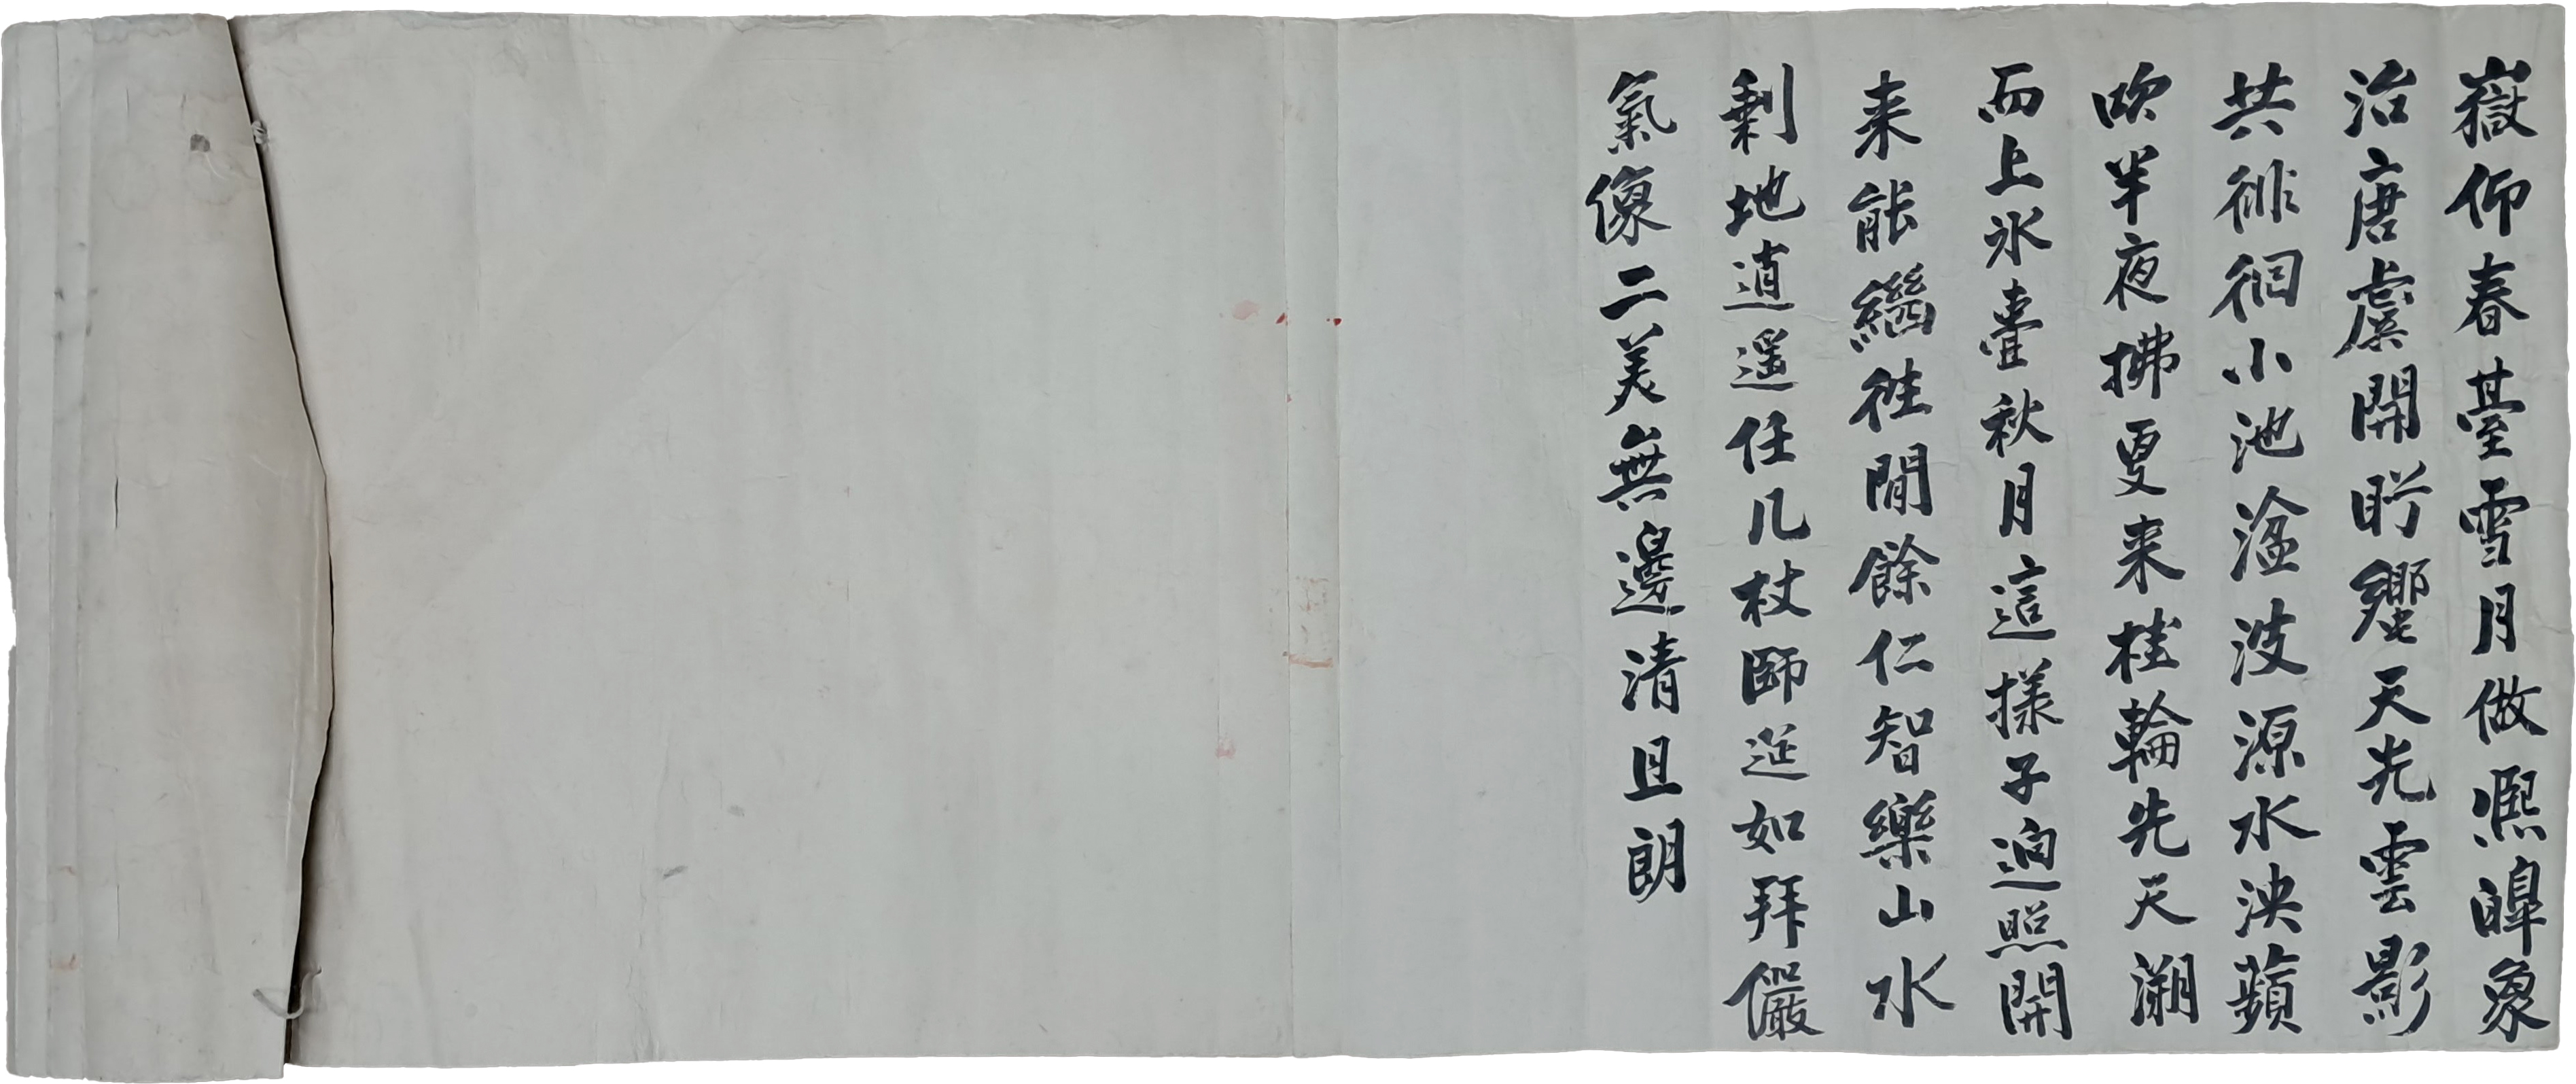 嶽仰春臺雪月做熙皞象
治唐虞開眄蠁天光雲影
共徘徊小池溢波源水泱蘋
吹半夜拂更来桂輪先天溯
而上氷壺秋月這㨾子逈照開
来能繼徃閒餘仁智樂山水
剩地逍遥任几杖師筵如拜儼
氣像二美無邊清且朗